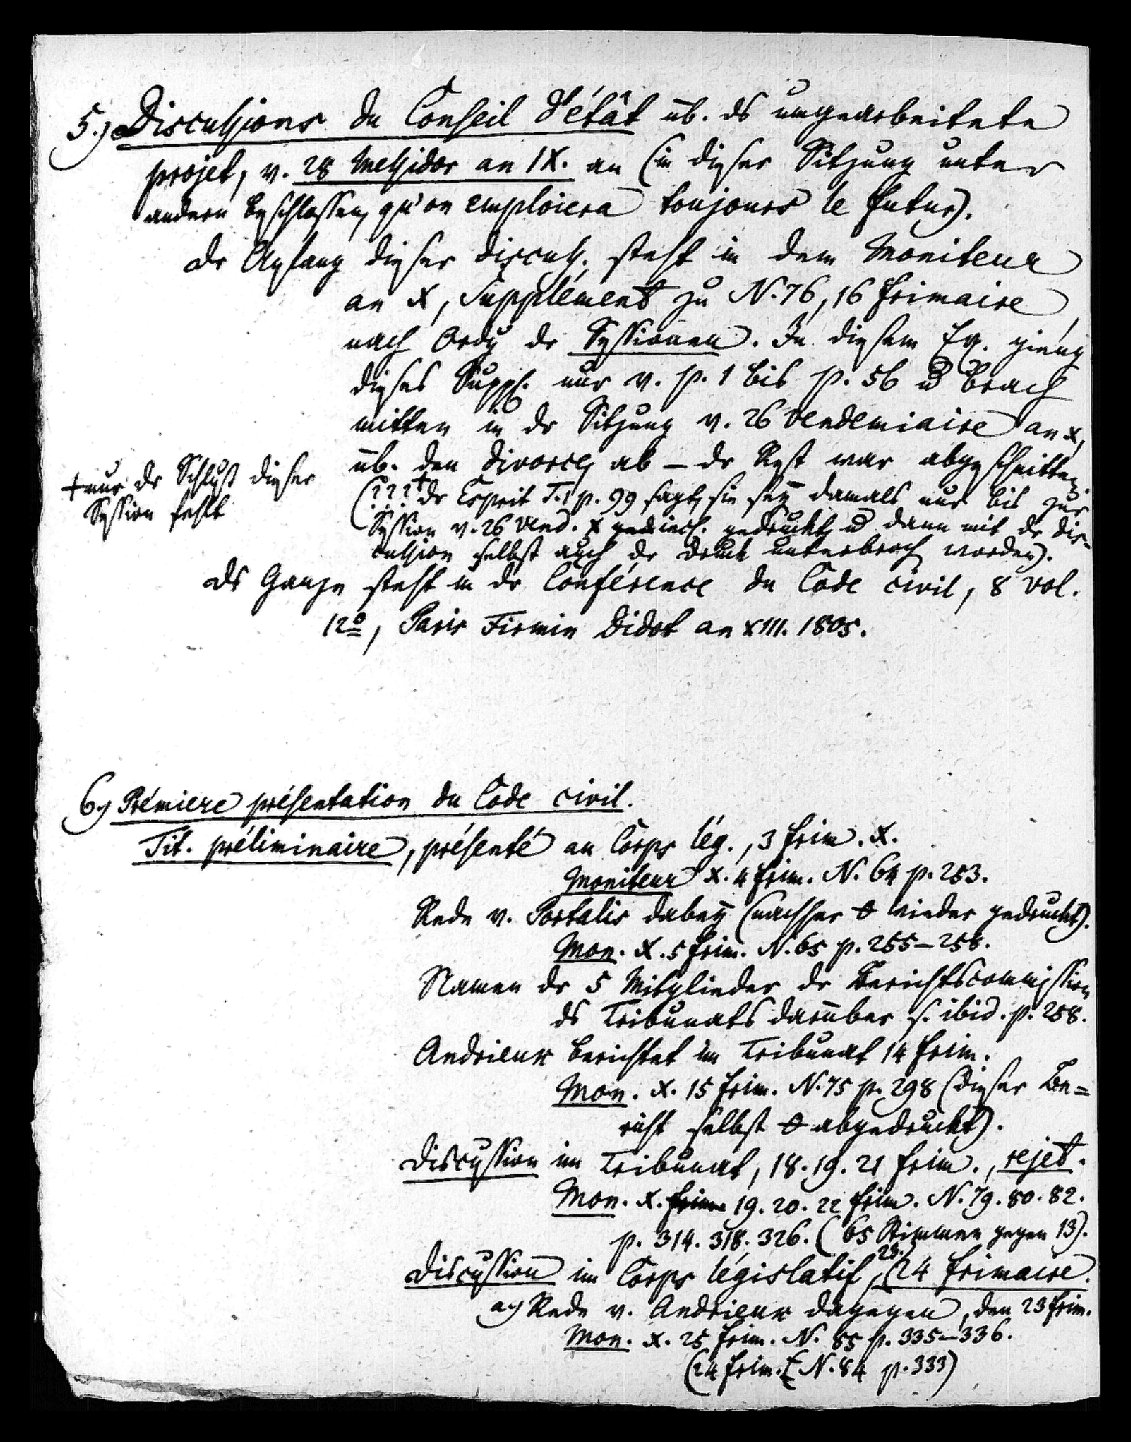 5.) Discussions du Conseil d'état üb. ds umgearbeitete
projet, v. 28 Messidor an IX. an (in dieser Sitzung unter
andern beschlossen, qu'on emploiera toujours le futur).
Dr Anfang dieser discuss. steht in dem Moniteur
an X, Supplément zu N. 76, 16 frimaire,
nach Ordg dr Sessionen. In diesem Ex. gieng
dieses Suppl. nur v. p. 1 bis p. 56 u brach
mitten in dr Sitzung v. 26 Vendemiaire an X,
üb. den divorce, ab – dr Rest war abgeschnitten.
(???+ dr Esprit T. 1 p. 99 sagt, sie sey damals nur bis zur
+ nur dr Schluß dieser
Session fehlt
Session v. 26 Vend. X incl. gedruckt, u dann mit dr Dis-
cussion selbst auch dr Druck unterbroch worden).
Ds Ganze steht in dr Conférence du Code civil, 8 vol.
12º, Paris Firmin Didot an XIII. 1805.
6.) Prémiere présentation du Code civil.
Tit. préliminaire, présenté au Corps lég., 3 frim. X.
Moniteur X. 4 frim. N. 64 p. 253.
Rede v. Portalis dabey (nachher θ wieder gedruckt).
Mon. X. 5 frim. N. 65 p. 255–258.
Namen dr 5 Mitglieder dr Berichtscommission
ds Tribunats darüber s. ibid. p. 258.
Andrieux berichtet im Tribunat 14 frim.
Mon. X. 15 frim. N. 75 p. 298 (dieser Be=
richt selbst θ abgedruckt).
Discussion im Tribunat, 18. 19. 21 frim., rejet.
Mon. X. frim. 19. 20. 22 frim. N. 79. 80. 82.
p. 314. 318. 326. (65 Stimmen gegen 13).
Discussion im Corps législatif, 23. 24 frimaire.
a) Rede v. Andrieux dagegen, den 23 frim.
Mon. X. 25 frim. N. 85 p. 335–336.
(24 frim. N. 84 p. 333)